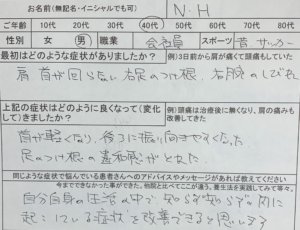 お名前(無記名・イニシャルでも可) N.H
ご年齢 10代 20代 30代 40代 50代 60代 70代 80代
性別 女 男 職業 会社員 スポーツ 昔サッカー
最初はどのような症状がありましたか? 例)3日前から肩が痛くて頭痛もしていた
肩 首が回らない 右足のつけ根、右腕のしびれ
上記の症状はどのように良くなって(変化して)きましたか? 例)頭痛は治療後に無くなり、肩の痛みも改善してきた
首が軽くなり、後ろに振り向きやすくなった
足のつけ根の違和感がとれた
同じような症状で悩んでいる患者さんへのアドバイスやメッセージがあれば教えてください
今までできなかった事ができた。他院と比べてここが違う。養生法を実践してみて等々。
自分自身の生活の中で知らず知らずの内に
起こしている症状を改善できると思います